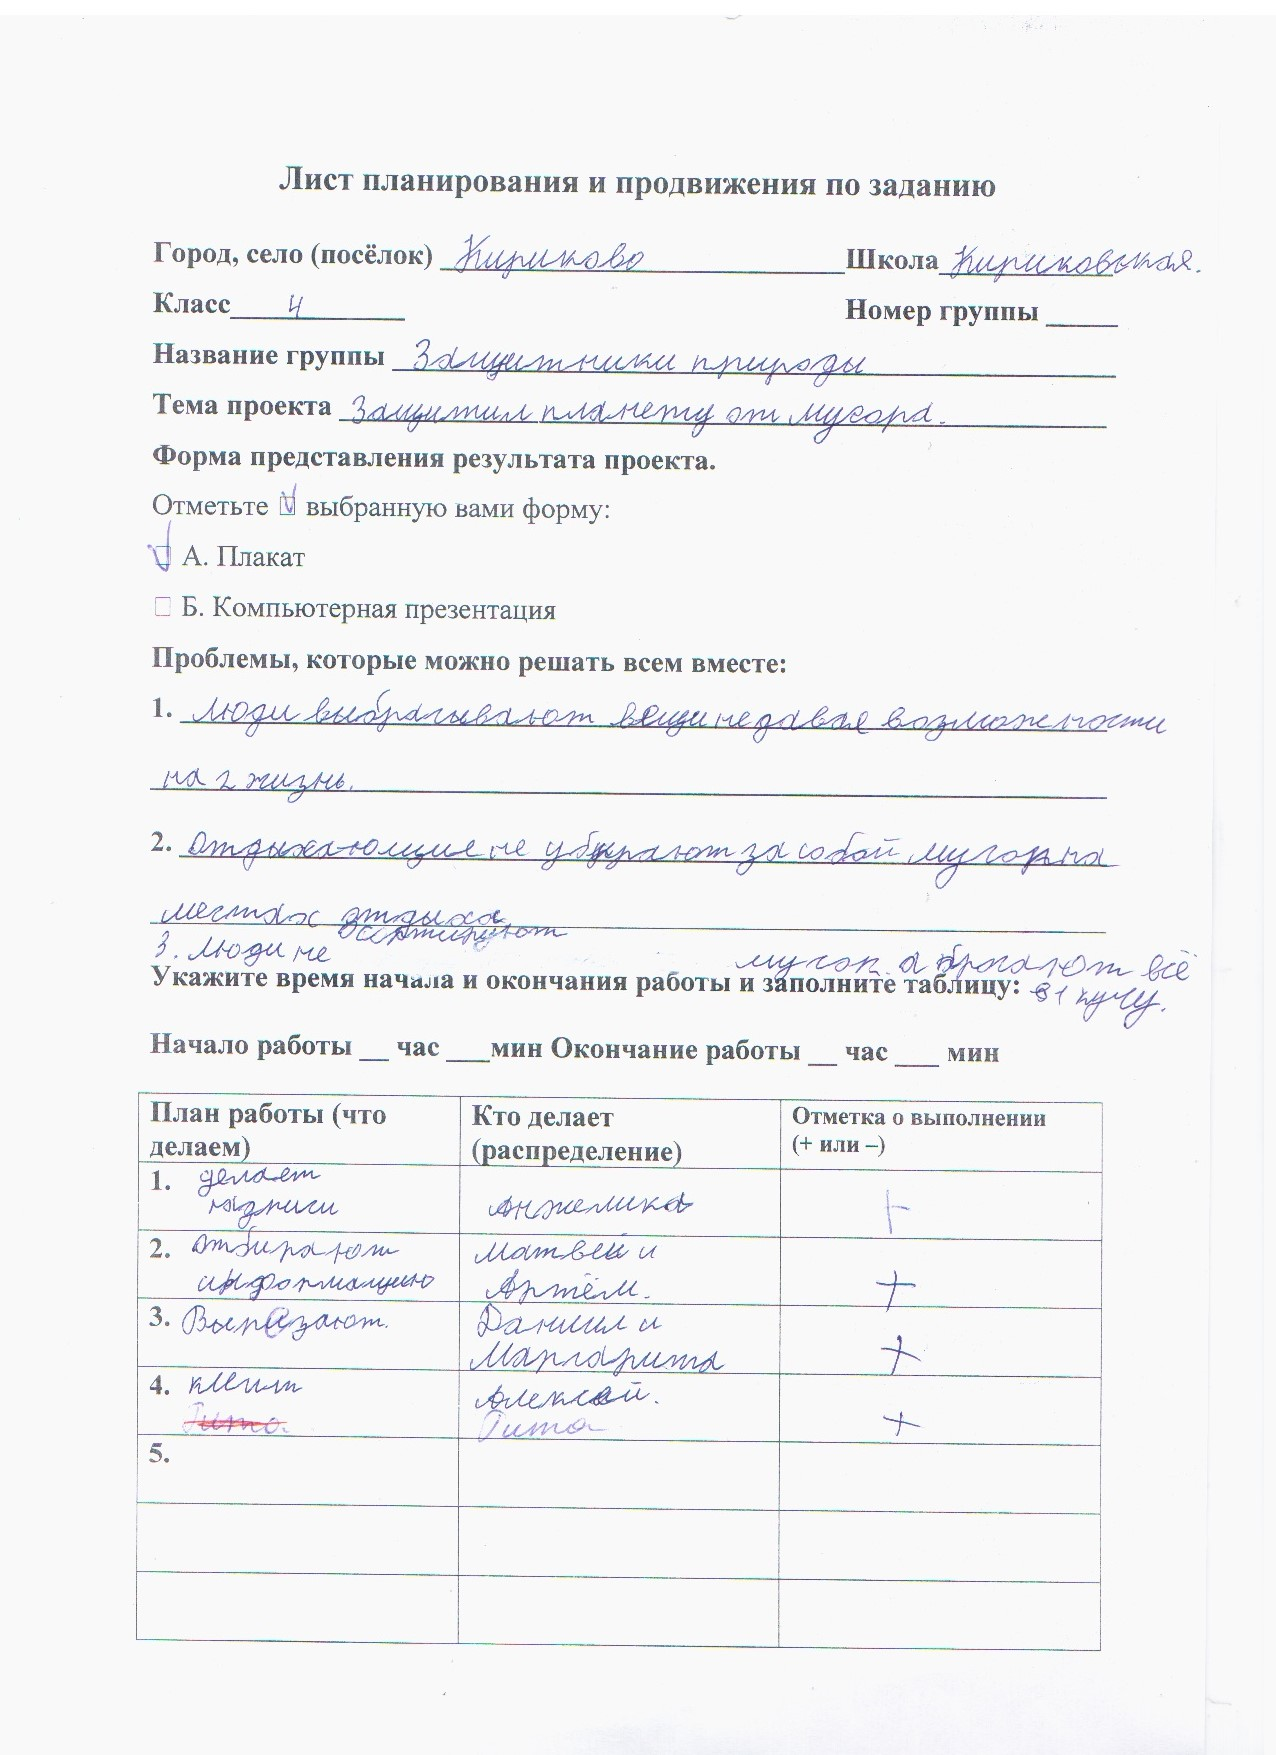 Лист планирования и продвижения по заданию
Город, село (посёлок) Кириково Школа Кириковская.
Класс 4 Номер группы
Название группы Защитники природы
Тема проекта Защитим планету от мусора.
Форма представления результата проекта.
Отметьте ☑ выбранную вами форму:
☑ А. Плакат
☐ Б. Компьютерная презентация
Проблемы, которые можно решать всем вместе:
1. Люди выбрасывают вещи не давая возможности
на 2 жизнь.
2. Отдыхающие не убирают за собой мусор на
местах отдыха
3. Люди не сортируют мусор, а бросают всё
в 1 кучу.
Укажите время начала и окончания работы и заполните таблицу:
Начало работы __ час ___мин Окончание работы __ час ___ мин
План работы (что делаем) Кто делает (распределение) Отметка о выполнении (+ или –)
1. делает Анжелика +
2. отбирают информацию Матвей и Артём. +
3. Вырезают. Даниил и Маргарита +
4. клеит Алексей. +
Тима Тима
5.